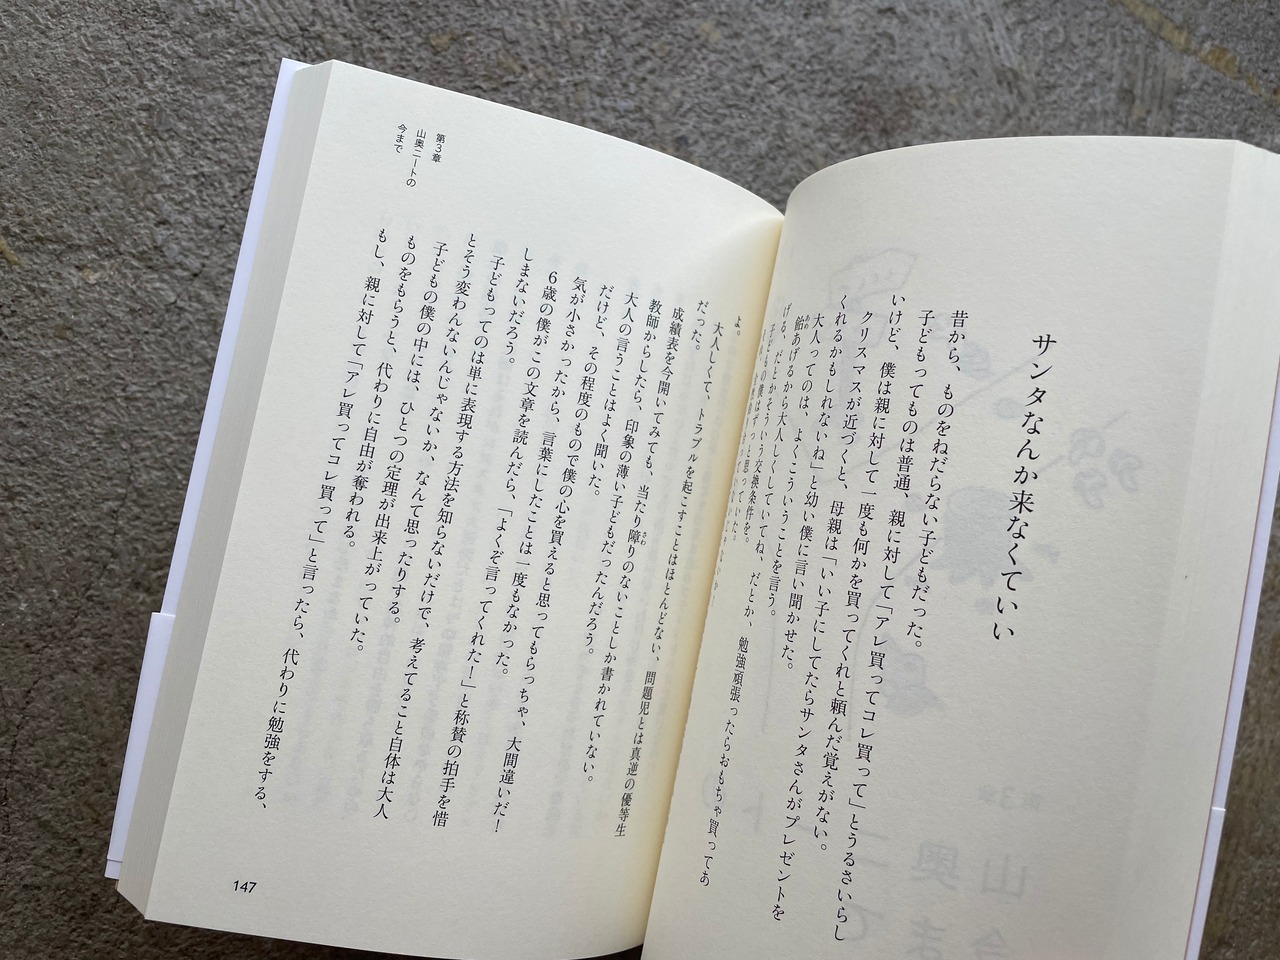 サンタなんか来なくていい
昔から、ものをねだらない子どもだった。
子どもってものは普通、親に対して「アレ買ってコレ買って」とうるさいらし
いけど、僕は親に対して一度も何かを買ってくれと頼んだ覚えがない。
クリスマスが近づくと、母親は「いい子にしてたらサンタさんがプレゼントを
くれるかもしれないね」と幼い僕に言い聞かせた。
大人ってのは、よくこういうことを言う。
飴あげるから大人しくしていてね、だとか、勉強頑張ったらおもちゃ買ってあ
げる、だとかそういう交換条件を。
子どもの僕はずっと思っていた。
よ。
大人しくて、トラブルを起こすことはほとんどない、問題児とは真逆の優等生
だった。
成績表を今開いてみても、当たり障りのないことしか書かれていない。
教師からしたら、印象の薄い子どもだったんだろう。
大人の言うことはよく聞いた。
だけど、その程度のもので僕の心を買えると思ってもらっちゃ、大間違いだ！
気が小さかったから、言葉にしたことは一度もなかった。
6歳の僕がこの文章を読んだら、「よくぞ言ってくれた！」と称賛の拍手を惜
しまないだろう。
子どもってのは単に表現する方法を知らないだけで、考えてること自体は大人
とそう変わんないんじゃないか、なんて思ったりする。
子どもの僕の中には、ひとつの定理が出来上がっていた。
ものをもらうと、代わりに自由が奪われる。
もし、親に対して「アレ買ってコレ買って」と言ったら、代わりに勉強をする、
第3章
山奥ニートの
今まで
147